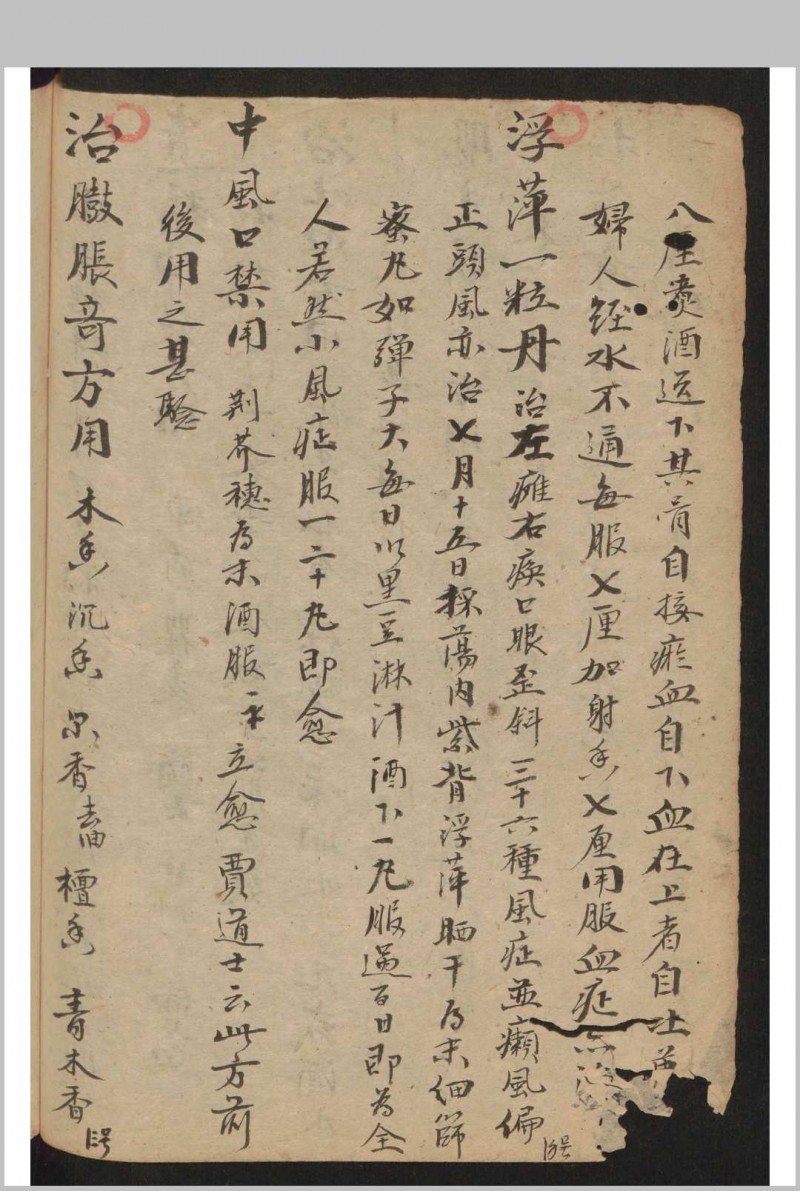 八厘煑酒送下其骨自接瘀血自下血在上者自吐
婦人經水不通每服乂厘加射香乂厘用服血症亦
浮萍一粒丹 治左瘫右痪口眼歪斜三十六種風症並癩風偏
正頭風亦治乂月十五日採蕩内紫背浮萍晒干为末細篩
蜜丸如彈子大每日以黑豆淋汁酒下一丸服過百日即为全
人若然小風症服一二十丸即愈
中風口禁用 荆芥穗为末酒服 立愈 賈道士云此方前
後用之甚騐
治臌脹奇方用 木香 沉香 乳香去油 檀香 青木香